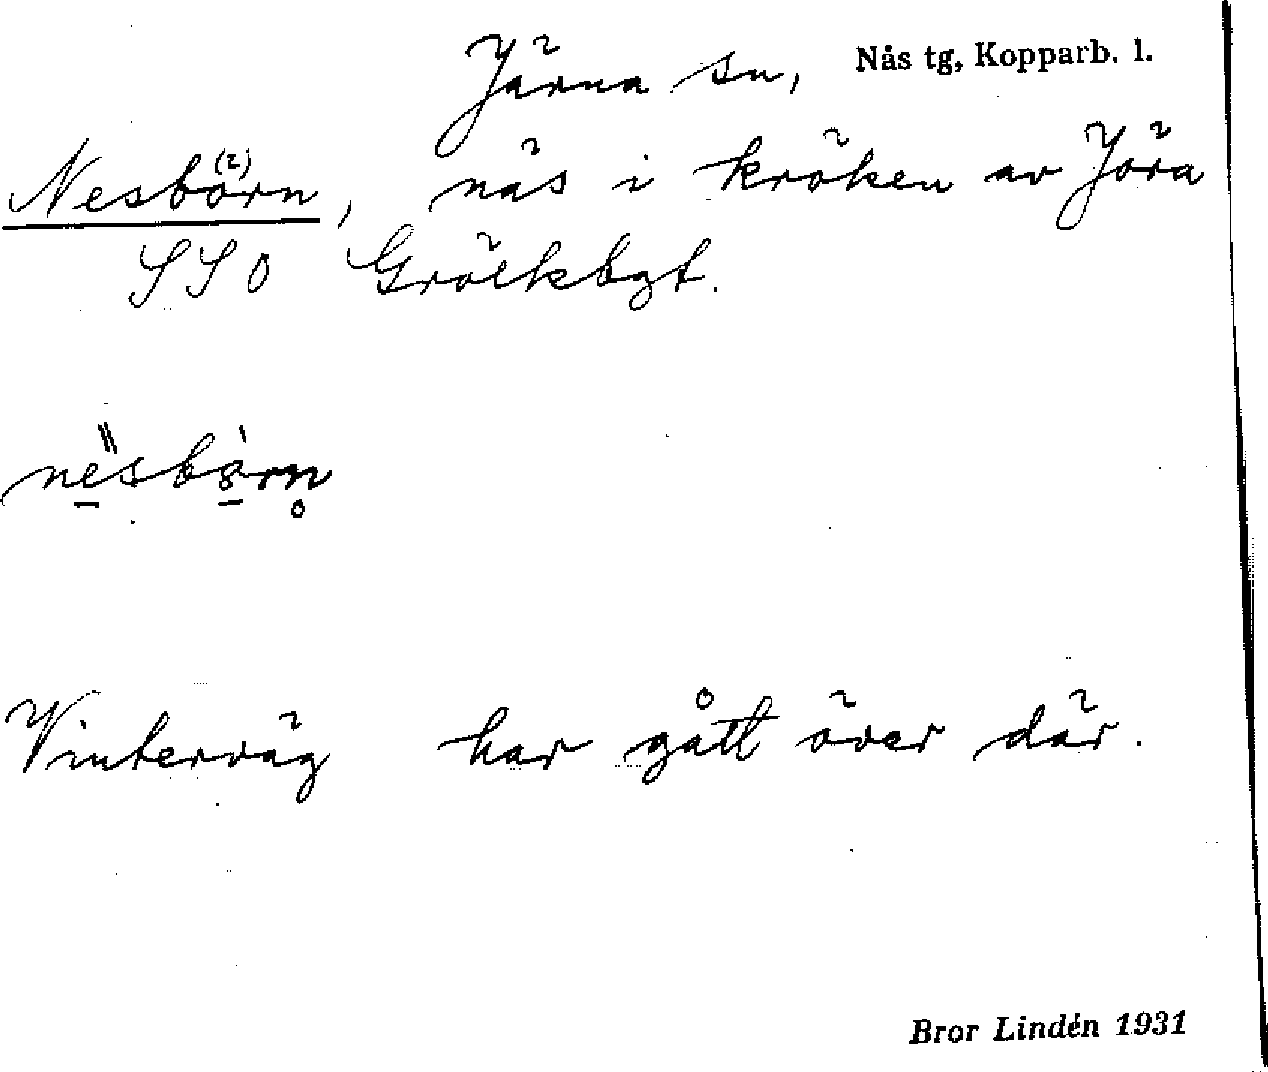 Järna sn, Nås tg, Kopparb. l.
Nesbö(ː)rn, näs i kröken av Jöra
SSO Grölkbgt.
nèsbȯ́rn̥
Vinterväg har gått över där.
Bror Lindén 1931